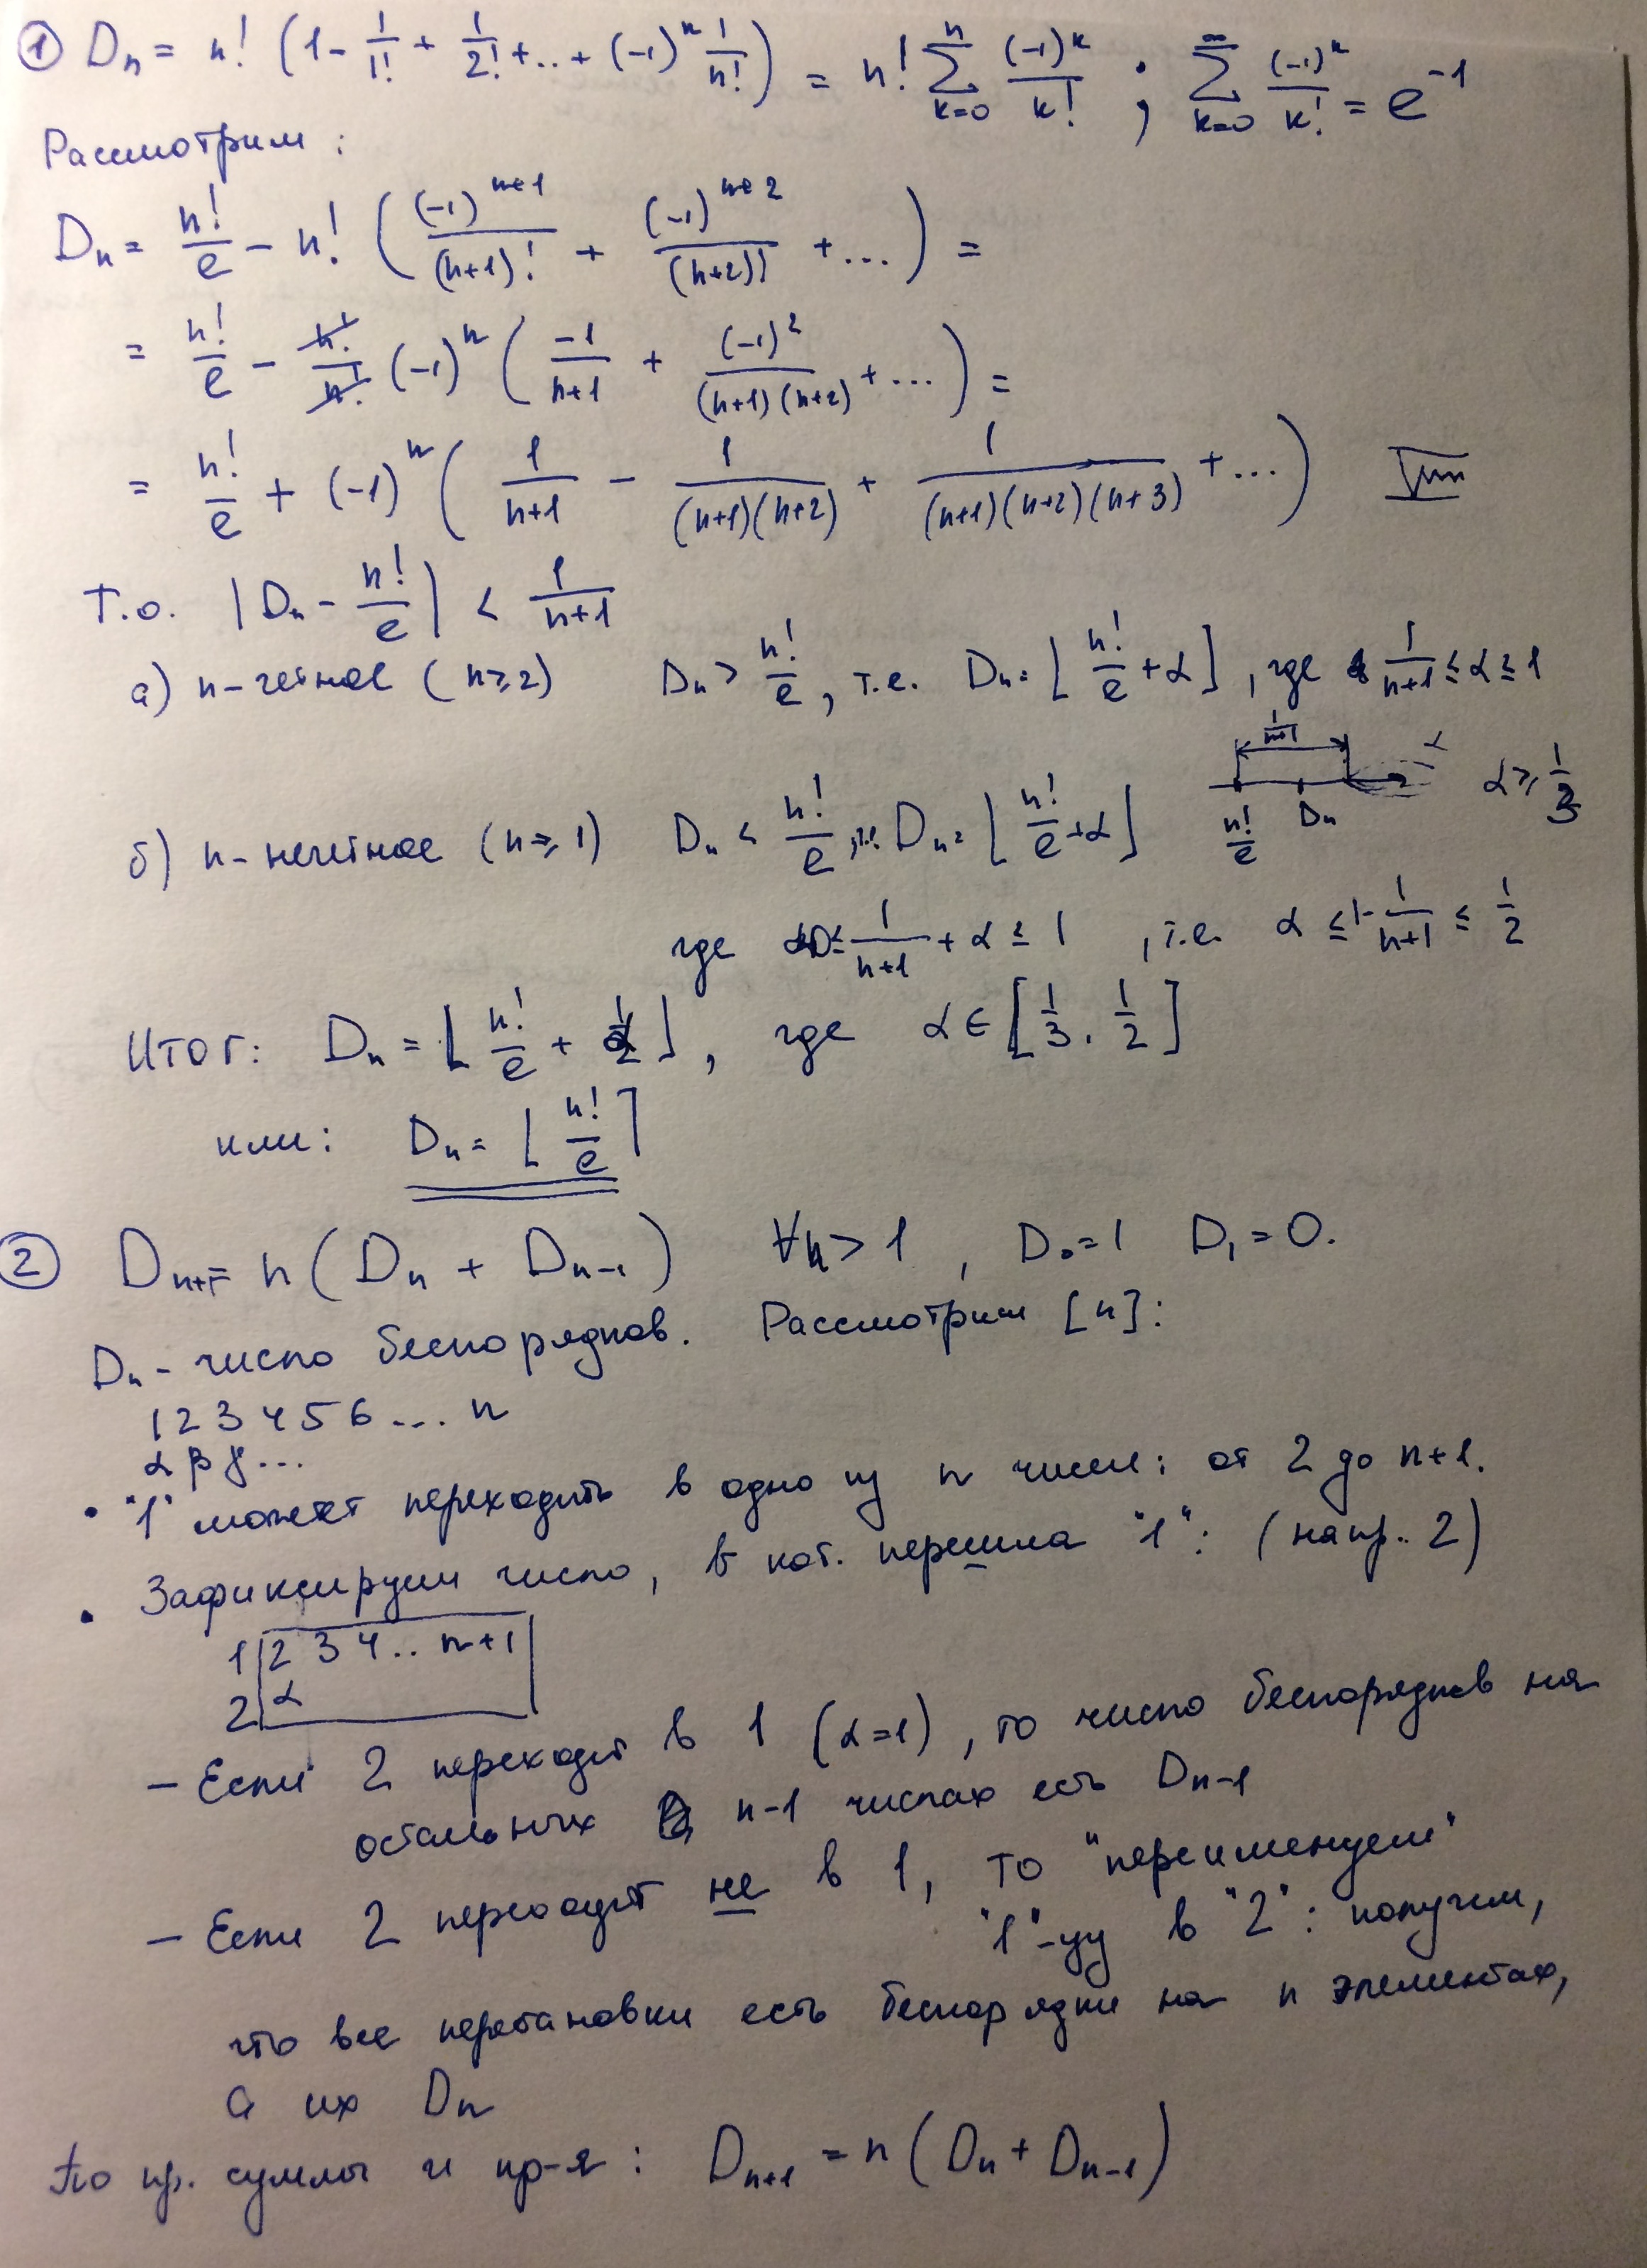 ① Dₙ = n! (1 - 1/1! + 1/2! + .. + (-1)ⁿ 1/n!) = n! ∑_{k=0}^{n} (-1)^k/k! ; ∑_{k=0}^{∞} (-1)^k/k! = e⁻¹
Рассмотрим :
Dₙ = n!/e - n! ((-1)^{n+1}/(n+1)! + (-1)^{n+2}/(n+2)! + ...) =
= n!/e - n!/n! (-1)ⁿ (-1/(n+1) + (-1)²/((n+1)(n+2)) + ...) =
= n!/e + (-1)ⁿ (1/(n+1) - 1/((n+1)(n+2)) + 1/((n+1)(n+2)(n+3)) + ...)
Т.о. |Dₙ - n!/e| < 1/(n+1)
а) n - четное (n ≥ 2) Dₙ > n!/e , т.е. Dₙ = ⌊n!/e + α⌋ , где 1/(n+1) ≤ α ≤ 1
1/(n+1) α
n!/e Dₙ α ≥ 1/3
б) n - нечетное (n ≥ 1) Dₙ < n!/e , т.е. Dₙ = ⌊n!/e + α⌋
где 0 ≤ 1/(n+1) + α ≤ 1 , т.е. α ≤ 1 - 1/(n+1) ≤ 1/2
Итог: Dₙ = ⌊n!/e + α⌋ , где α ∈ [1/3, 1/2]
или: Dₙ = ⌊n!/e⌉
② Dₙ₊₁ = n (Dₙ + Dₙ₋₁) ∀n > 1 , D₀ = 1 D₁ = 0.
Dₙ - число беспорядков. Рассмотрим [n] :
1 2 3 4 5 6 ... n
α β γ ...
• "1" может переходить в одно из n чисел: от 2 до n+1.
• Зафиксируем число, в кот. перешла "1": (напр. 2)
1 | 2 3 4 .. n+1
2 | α
- Если 2 переходит в 1 (α=1), то число беспорядков на
остальных n-1 числах есть Dₙ₋₁
- Если 2 переходит не в 1, то "переименуем"
"1"-цу в "2" : получим,
что все перестановки есть беспорядки на n элементах,
а их Dₙ
По пр. суммы и пр-я : Dₙ₊₁ = n (Dₙ + Dₙ₋₁)